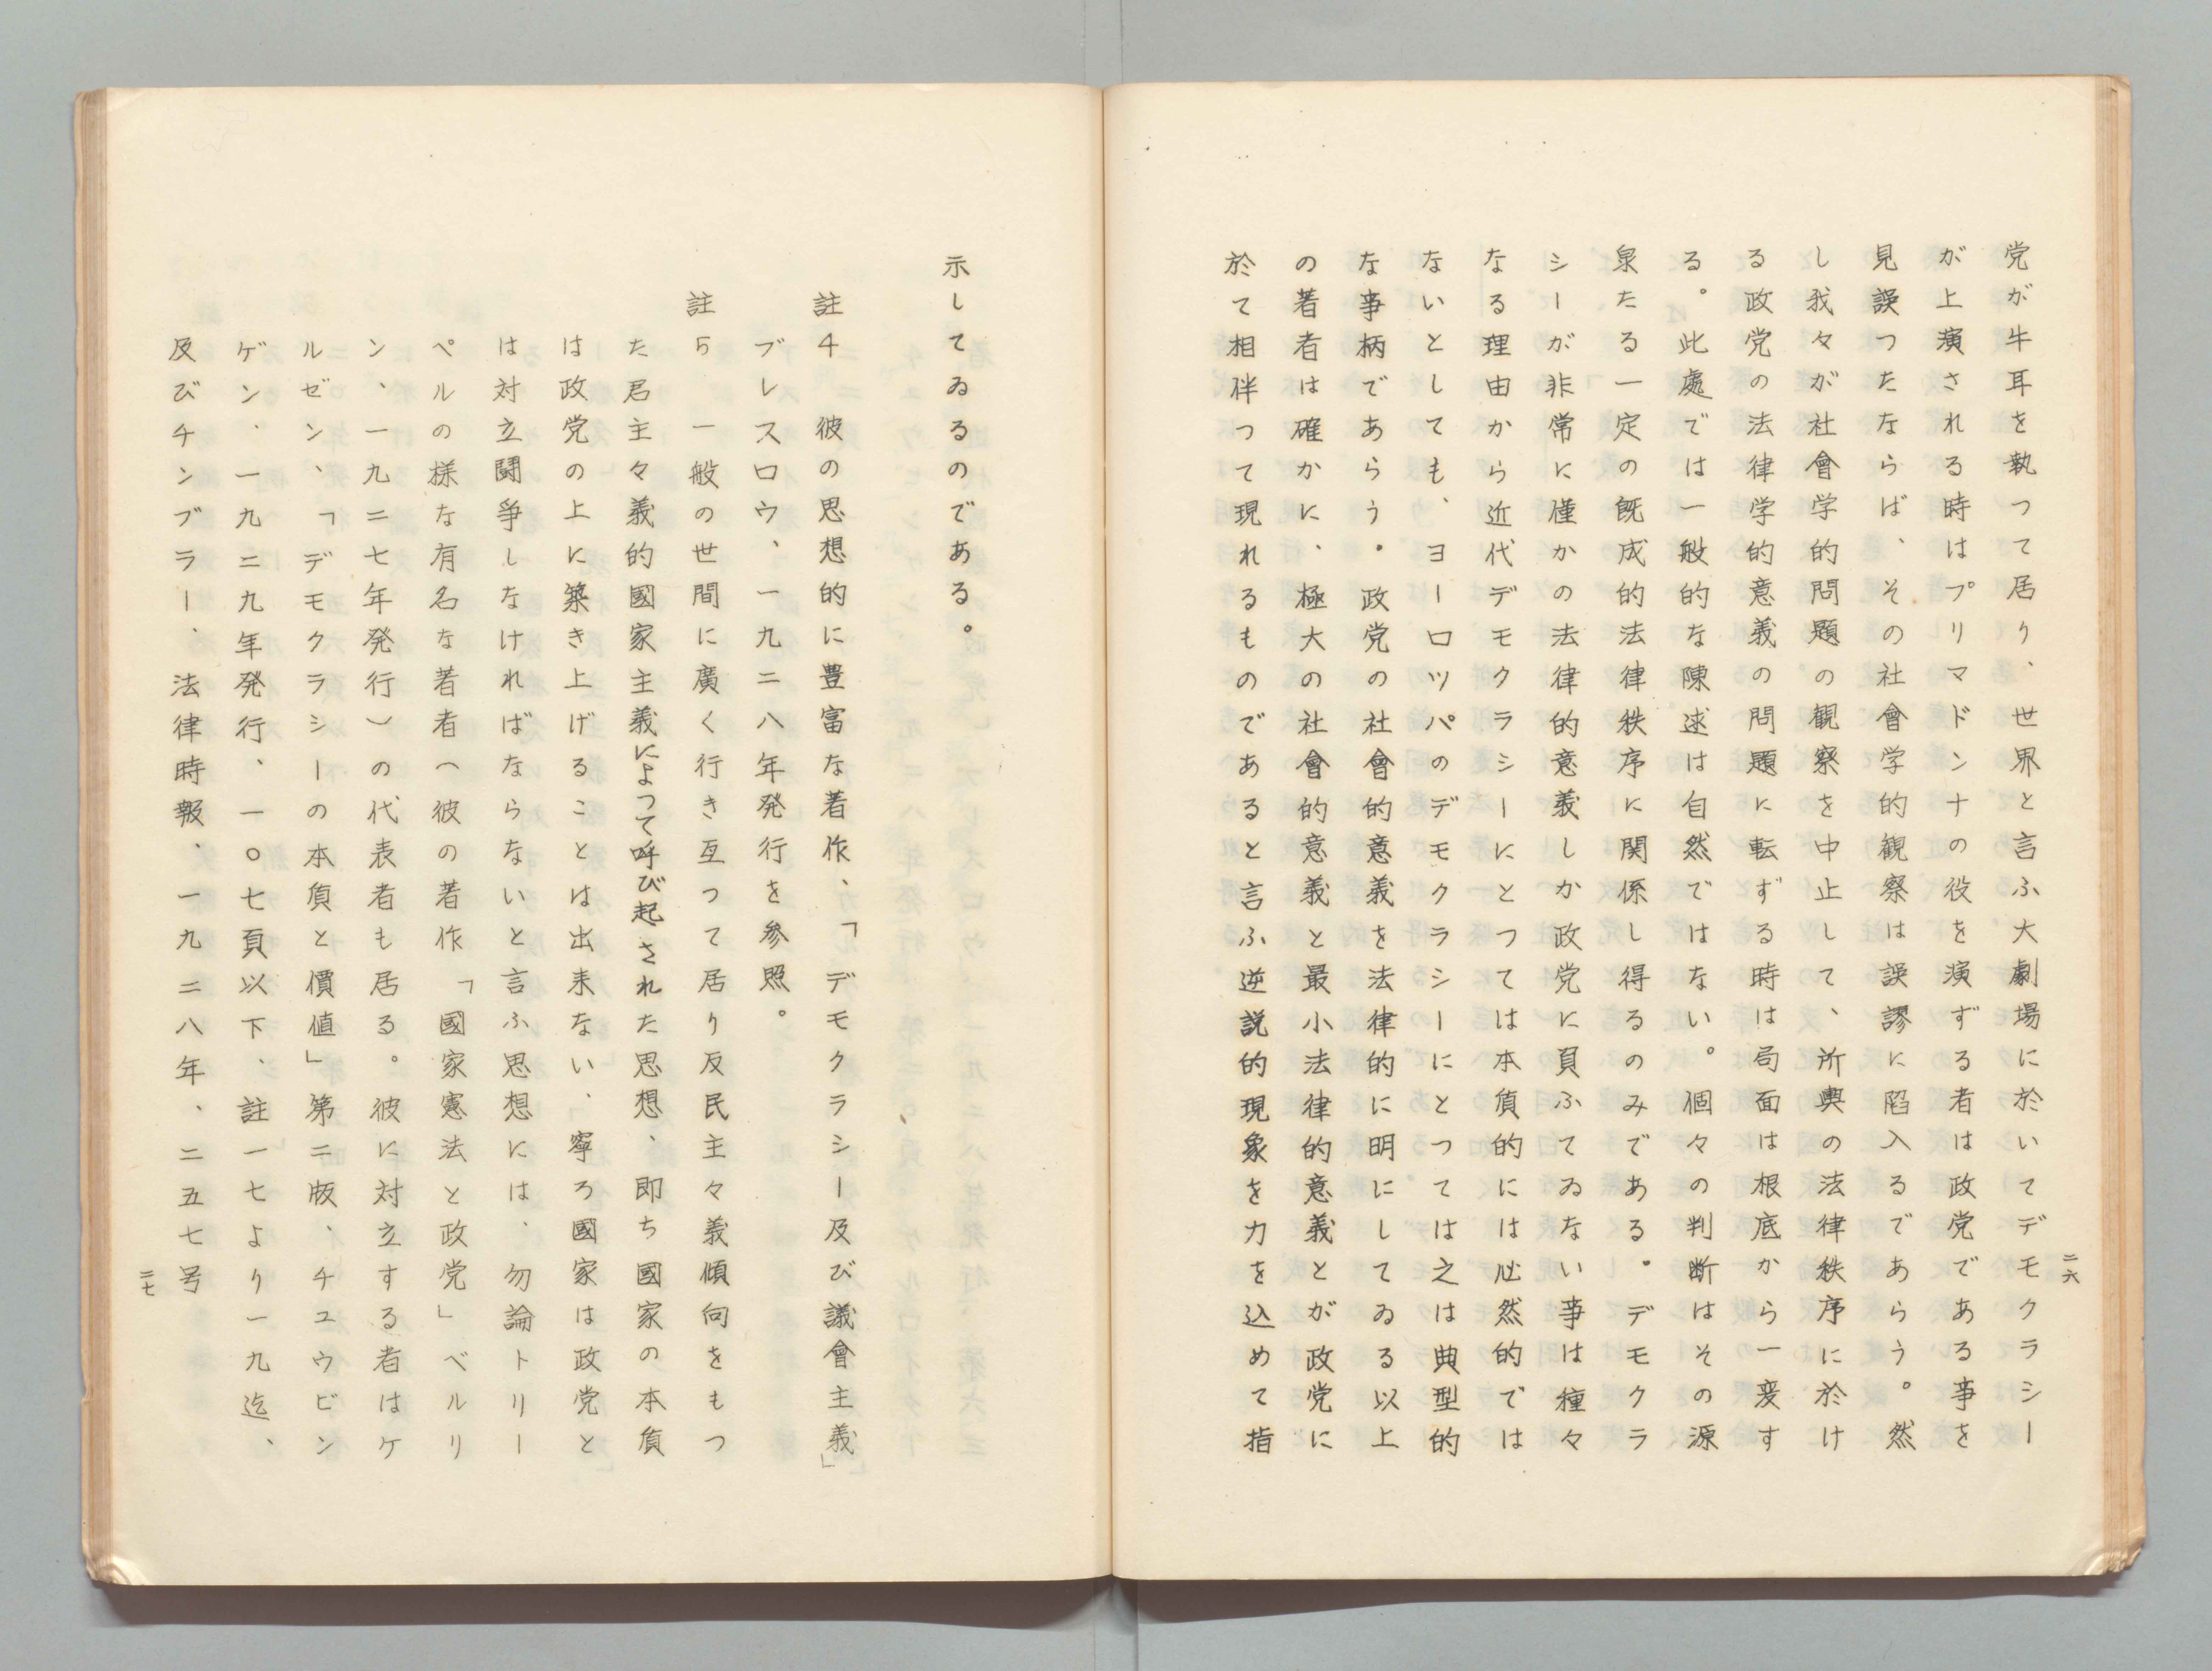 党が牛耳を執つて居り、世界と言ふ大劇場に於いてデモクラシー
が上演される時はプリマドンナの役を演ずる者は政党である事を
見誤つたならば、その社會学的観察は誤謬に陷入るであらう。然
し我々が社會学的問題の観察を中止して、所與の法律秩序に於け
る政党の法律学的意義の問題に転ずる時は局面は根底から一変す
る。此處では一般的な陳述は自然ではない。個々の判断はその源
泉たる一定の既成的法律秩序に関係し得るのみである。デモクラ
シーが非常に僅かの法律的意義しか政党に負ふてゐない事は種々
なる理由から近代デモクラシーにとつては本質的には必然的では
ないとしても、ヨーロツパのデモクラシーにとつては之は典型的
な事柄であらう。政党の社會的意義を法律的に明にしてゐる以上
の著者は確かに、極大の社會的意義と最小法律的意義とが政党に
於て相伴つて現れるものであると言ふ逆説的現象を力を込めて指
二六
示してゐるのである。
註4 彼の思想的に豊富な著作、「デモクラシー及び議會主義」
ブレスロウ、一九二八年発行を参照。
註5 一般の世間に廣く行き亙つて居り反民主々義傾向をもつ
た君主々義的國家主義によつて呼び起された思想、即ち國家の本質
は政党の上に築き上げることは出来ない、寧ろ國家は政党と
は対立闘爭しなければならないと言ふ思想には、勿論トリー
ペルの様な有名な著者（彼の著作「國家憲法と政党」ベルリ
ン、一九二七年発行）の代表者も居る。彼に対立する者はケ
ルゼン、「デモクラシーの本質と價値」第二版、チユウビン
ゲン、一九二九年発行、一〇七頁以下、註一七より一九迄、
及びチンブラー、法律時報、一九二八年、二五七号
二七